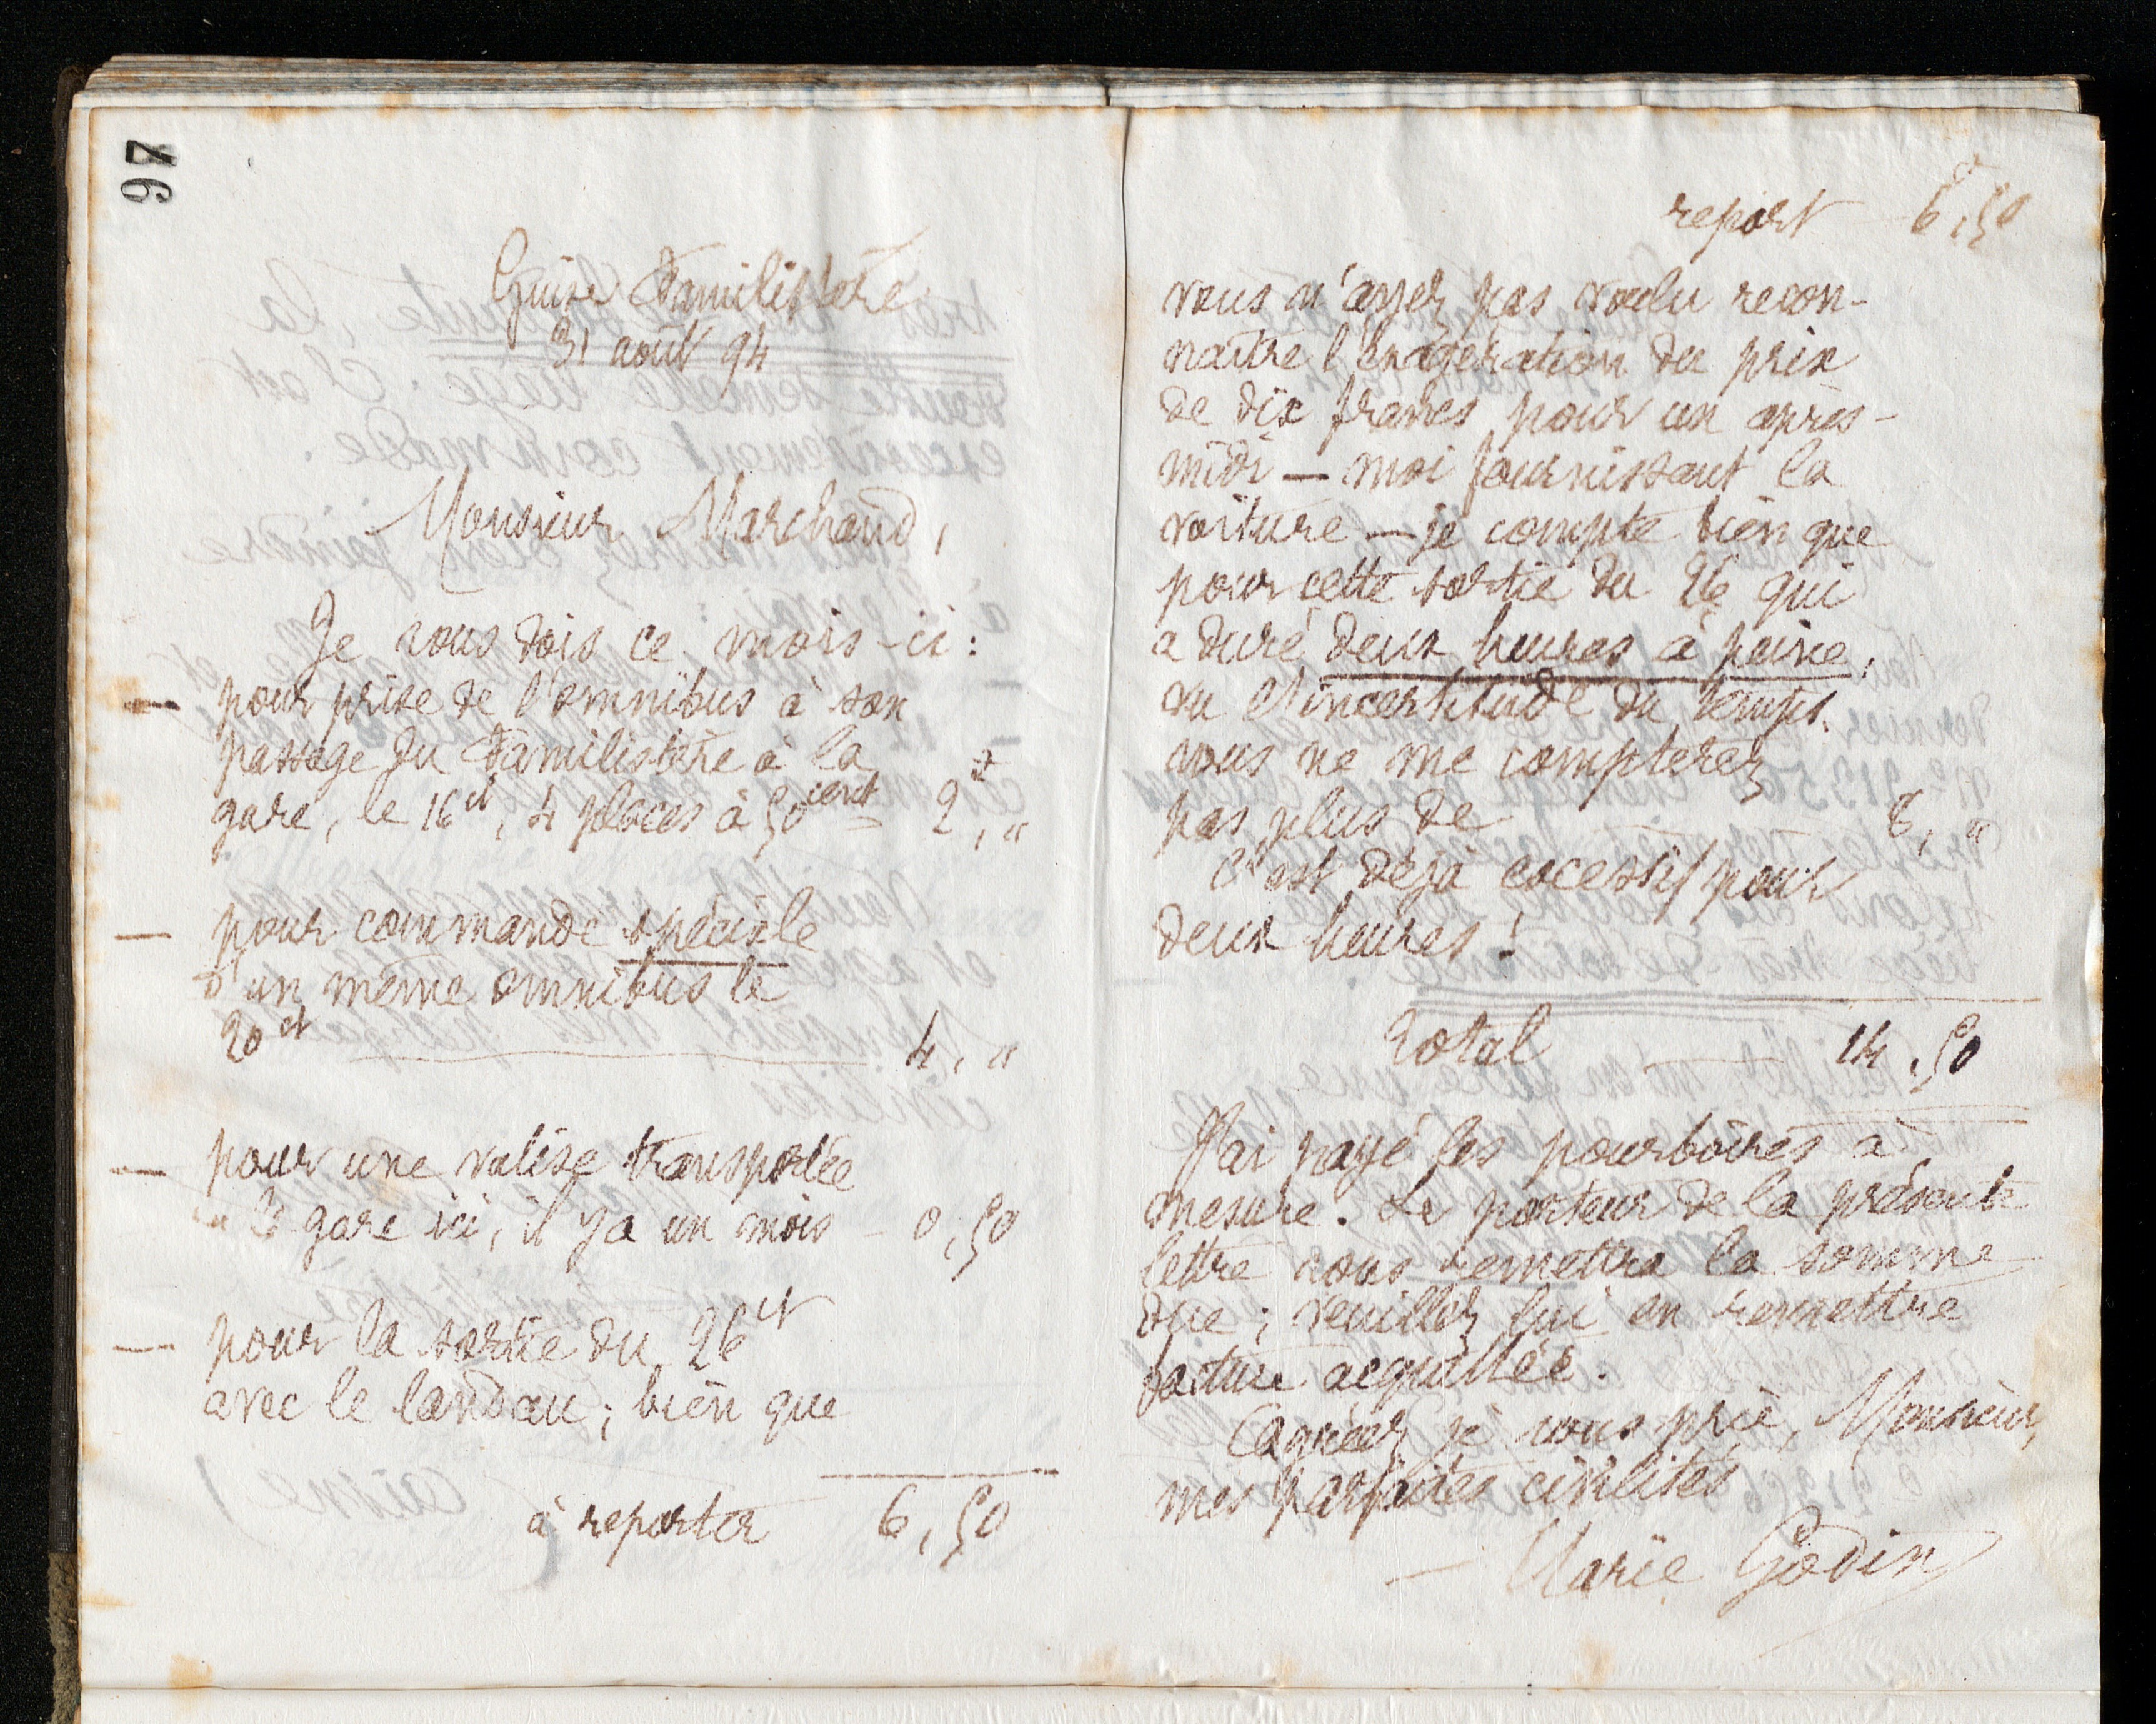 97
Guise Familistère
31 août 94
Monsieur Marchand,
Je vous dois ce mois-ci :
— pour prise de l'omnibus à son
passage du Familistère à la
gare, le 16 ct, 4 places à 50 cent = 2f, "
— pour commande spéciale
d'un même omnibus le
20 ct — 4, "
— pour une valise transportée
de gare ici, il y a un mois — 0,50
— pour la sortie du 26 ct
avec le landau ; bien que
à reporter 6,50
report 6,50
vous n'ayez pas voulu recon-
naître l'exagération du prix
de dix francs pour un après-
midi — moi fournissant la
voiture — je compte bien que
pour cette sortie du 26 qui
a duré deux heures à peine,
vu l'incertitude du temps,
vous ne me compterez
pas plus de 8, "
C'est déjà excessif pour
deux heures !
Total — 14,50
J'ai payé les pourboires à
mesure. Le porteur de la présente
lettre vous remettra la somme
due ; veuillez lui en remettre
facture acquittée.
Agréez, je vous prie, Monsieur,
mes parfaites civilités
— Marie Godin